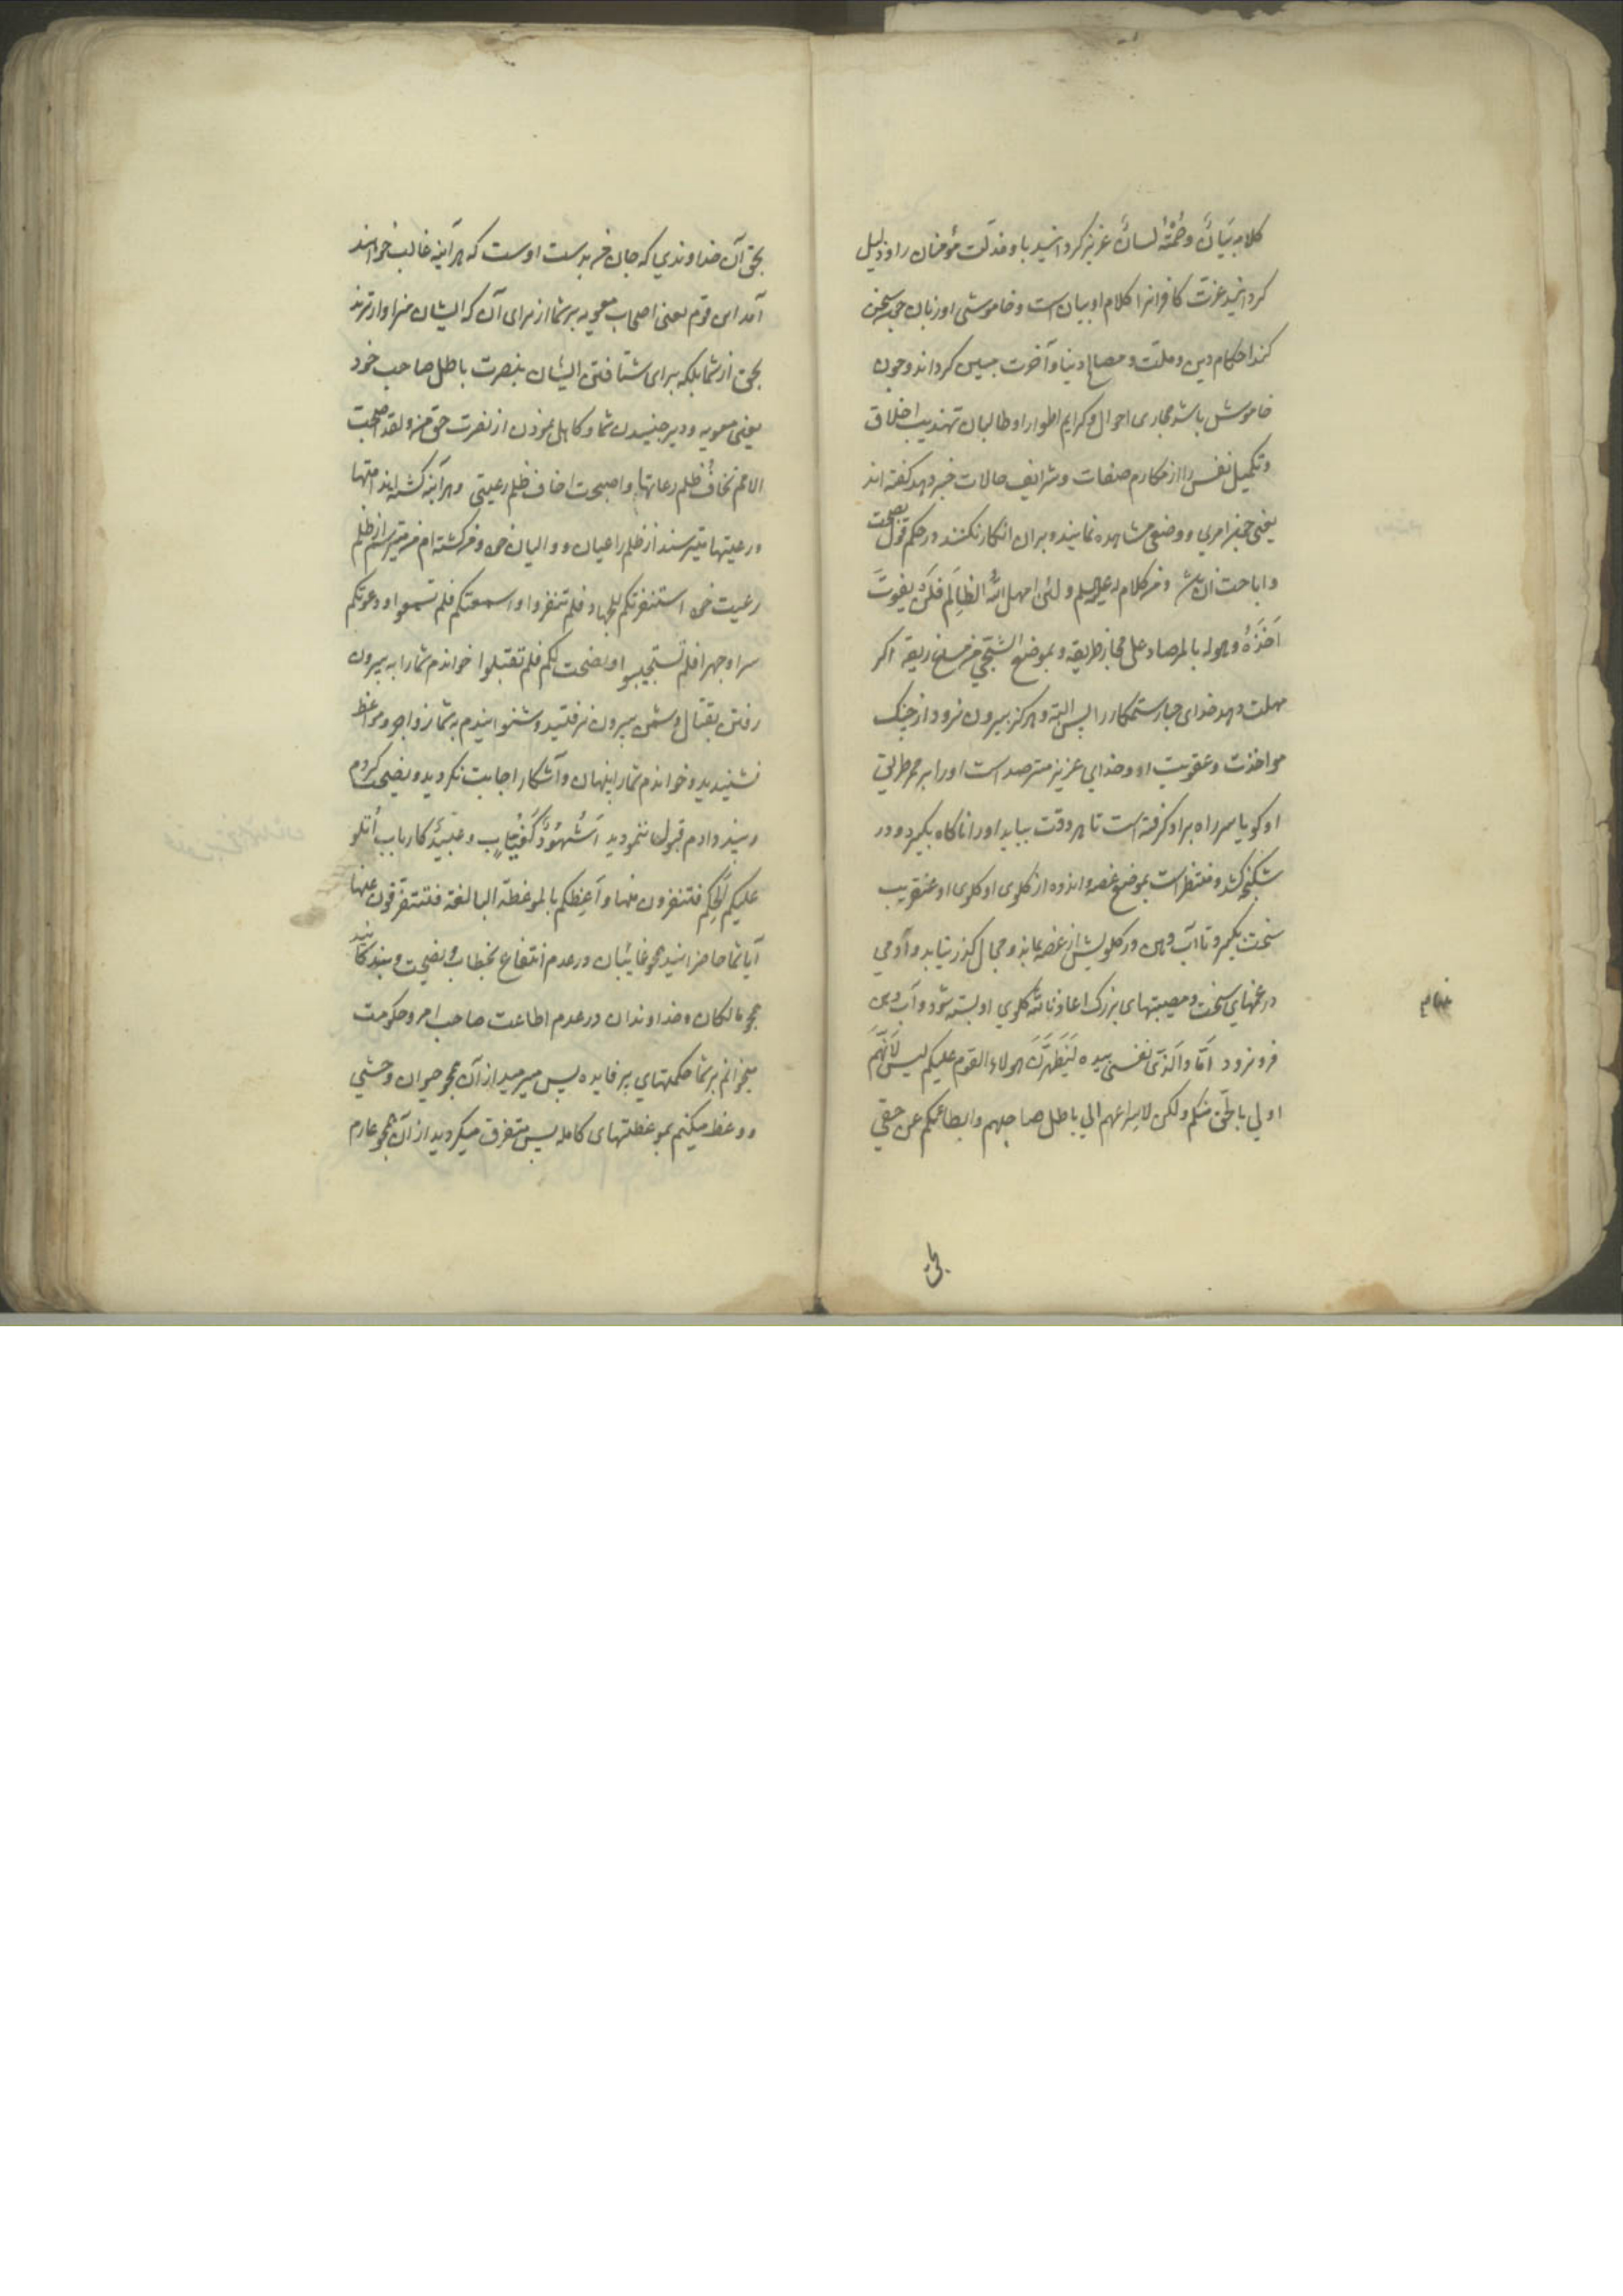 کلامه بَیَانٌ وصَمْتُهُ لسانٌ عزیز کردانید باو مذلّت مؤمنان را و ذلیل
کردانید عزت کافرانرا کلام او بیان است و خاموشی او زبان چون سخن
کند احکام دین و ملّت و مصالح دنیا و آخرت مبین کرداند و چون
خاموش باشد مجاری احوال و کرایم اطوار او طالبان تهذیب اخلاق
و تکمیل نفس را از مکارم صفات و شرایف حالات خبر دهد کفته اند
یعنی چیز امری و وضعی مشاهده نمایند و بران انکار نکنند در حکم قول بصحت
و اباحت ان باشد ومن کلام له علیه السلم ولئن امهل الله الظالم فلن یفوت
اَخْذُهُ وهو له بالمرصاد علی مجاز طریقه و بموضع الشجی من مساغ ریقه اکر
مهلت دهد خدای جبار ستمکار را پس البته و هرکز بیرون نرود از چنک
مواخذت و عقوبت او و خدای عزیز مترصد است او را بر ممر طریق
او کویا سر راه بر او کرفته است تا هر وقت بیاید او را ناکاه بکیرد و در
شکنجه کشد و منتظر است بموضع غصه و اندوه از کلوی او کلوی او عنقریب
سخت بکیرد تا آب دهن در کلویش از غصه بماند و مجال کذر نیابد و آدمی
در غمهای سخت و مصیبتهای بزرک اعاذنا الله کلوی او بسته شود و آب دهن
فرو نرود اَمَا والّذی نفسی بیده لَیَظهَرَنَّ هولاء القوم علیکم لیس لانّهم
اولی بالحق منکم ولکن لاسراعهم الی باطل صاحبهم وابطائکم عن حقی
بحق
بحق آن خداوندی که جان من بدست اوست که هر آینه غالب خواهند
آمد این قوم یعنی اصحاب معویه بر شما از برای آن که ایشان سزاوارترند
بحق از شما بلکه برای شتافتن ایشان بنصرت باطل صاحب خود
یعنی معویه و دیر جنبیدن شما و کاهل نمودن از نصرت حق من ولقد اصبحت
الامم تخاف ظلم رعاتها واصبحت اخاف ظلم رعیتی و هر آینه کشته اند امتها
و رعیتها میترسند از ظلم راعیان و والیان خود و من کشته ام من میترسم از ظلم
رعیت خود استنفرتکم للجهاد فلم تنفروا واسمعتکم فلم تسمعوا ودعوتکم
سرا وجهرا فلم تستجیبوا ونصحت لکم فلم تقبلوا خواندم شما را به بیرون
رفتن بقتال دشمن بیرون نرفتید و شنوانیدم به شما زواجر و مواعظ
نشنیدید و خواندم شما را پنهان و آشکارا اجابت نکردید و نصیحت کردم
و پند دادم قبول ننمودید اَشُهُودٌ کَغُیّابٍ وعَبیدٌ کارباب أتلو
علیکم الحِکَم فتنفرون منها واَعِظکم بالموعظة البالغة فتتفرّقون عنها
آیا شما حاضرانید همچو غایبان در عدم انتفاع بخطاب و نصیحت و بندکانید
همچو مالکان و خداوندان در عدم اطاعت صاحب امر و حکومت
میخوانم بر شما حکمتهای پر فایده پس میرمید از آن همچو حیوان وحشی
و وعظ میکنم بموعظتهای کامله پس متفرق میکردید از آن همچو عارم